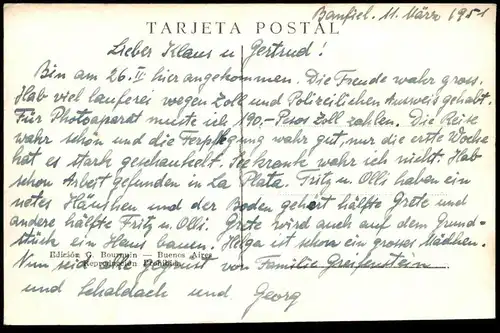 Banfiel. 11. März 1951
TARJETA POSTAL
Lieber Klaus u Gertrud!
Bin am 26. II hier angekommen. Die Freude wahr gross.
Hab viel lauferei wegen Zoll und Polizeilichen Ausweis gehabt.
Für Photoaparat muste ich 190,- Pesos Zoll zahlen. Die Reise
wahr schön und die Ferpflegung wahr gut, nur die erste Woche
hat es stark geschaukelt. Seekrank wahr ich nicht. Hab
schon Arbeit gefunden in La Plata. Fritz u. Olli haben ein
netes Häuschen und der Boden gehört hälfte Grete und
andere hälfte Fritz u. Olli. Grete wird auch auf dem Grund-
stück ein Haus bauen. Helga ist schon ein grosses Mädchen.
Edición G. Bourquin — Buenos Aires
Reproducción Prohibida
Nun seid alle gegrüst von Familie Greifenstein
und Schaldach und Georg